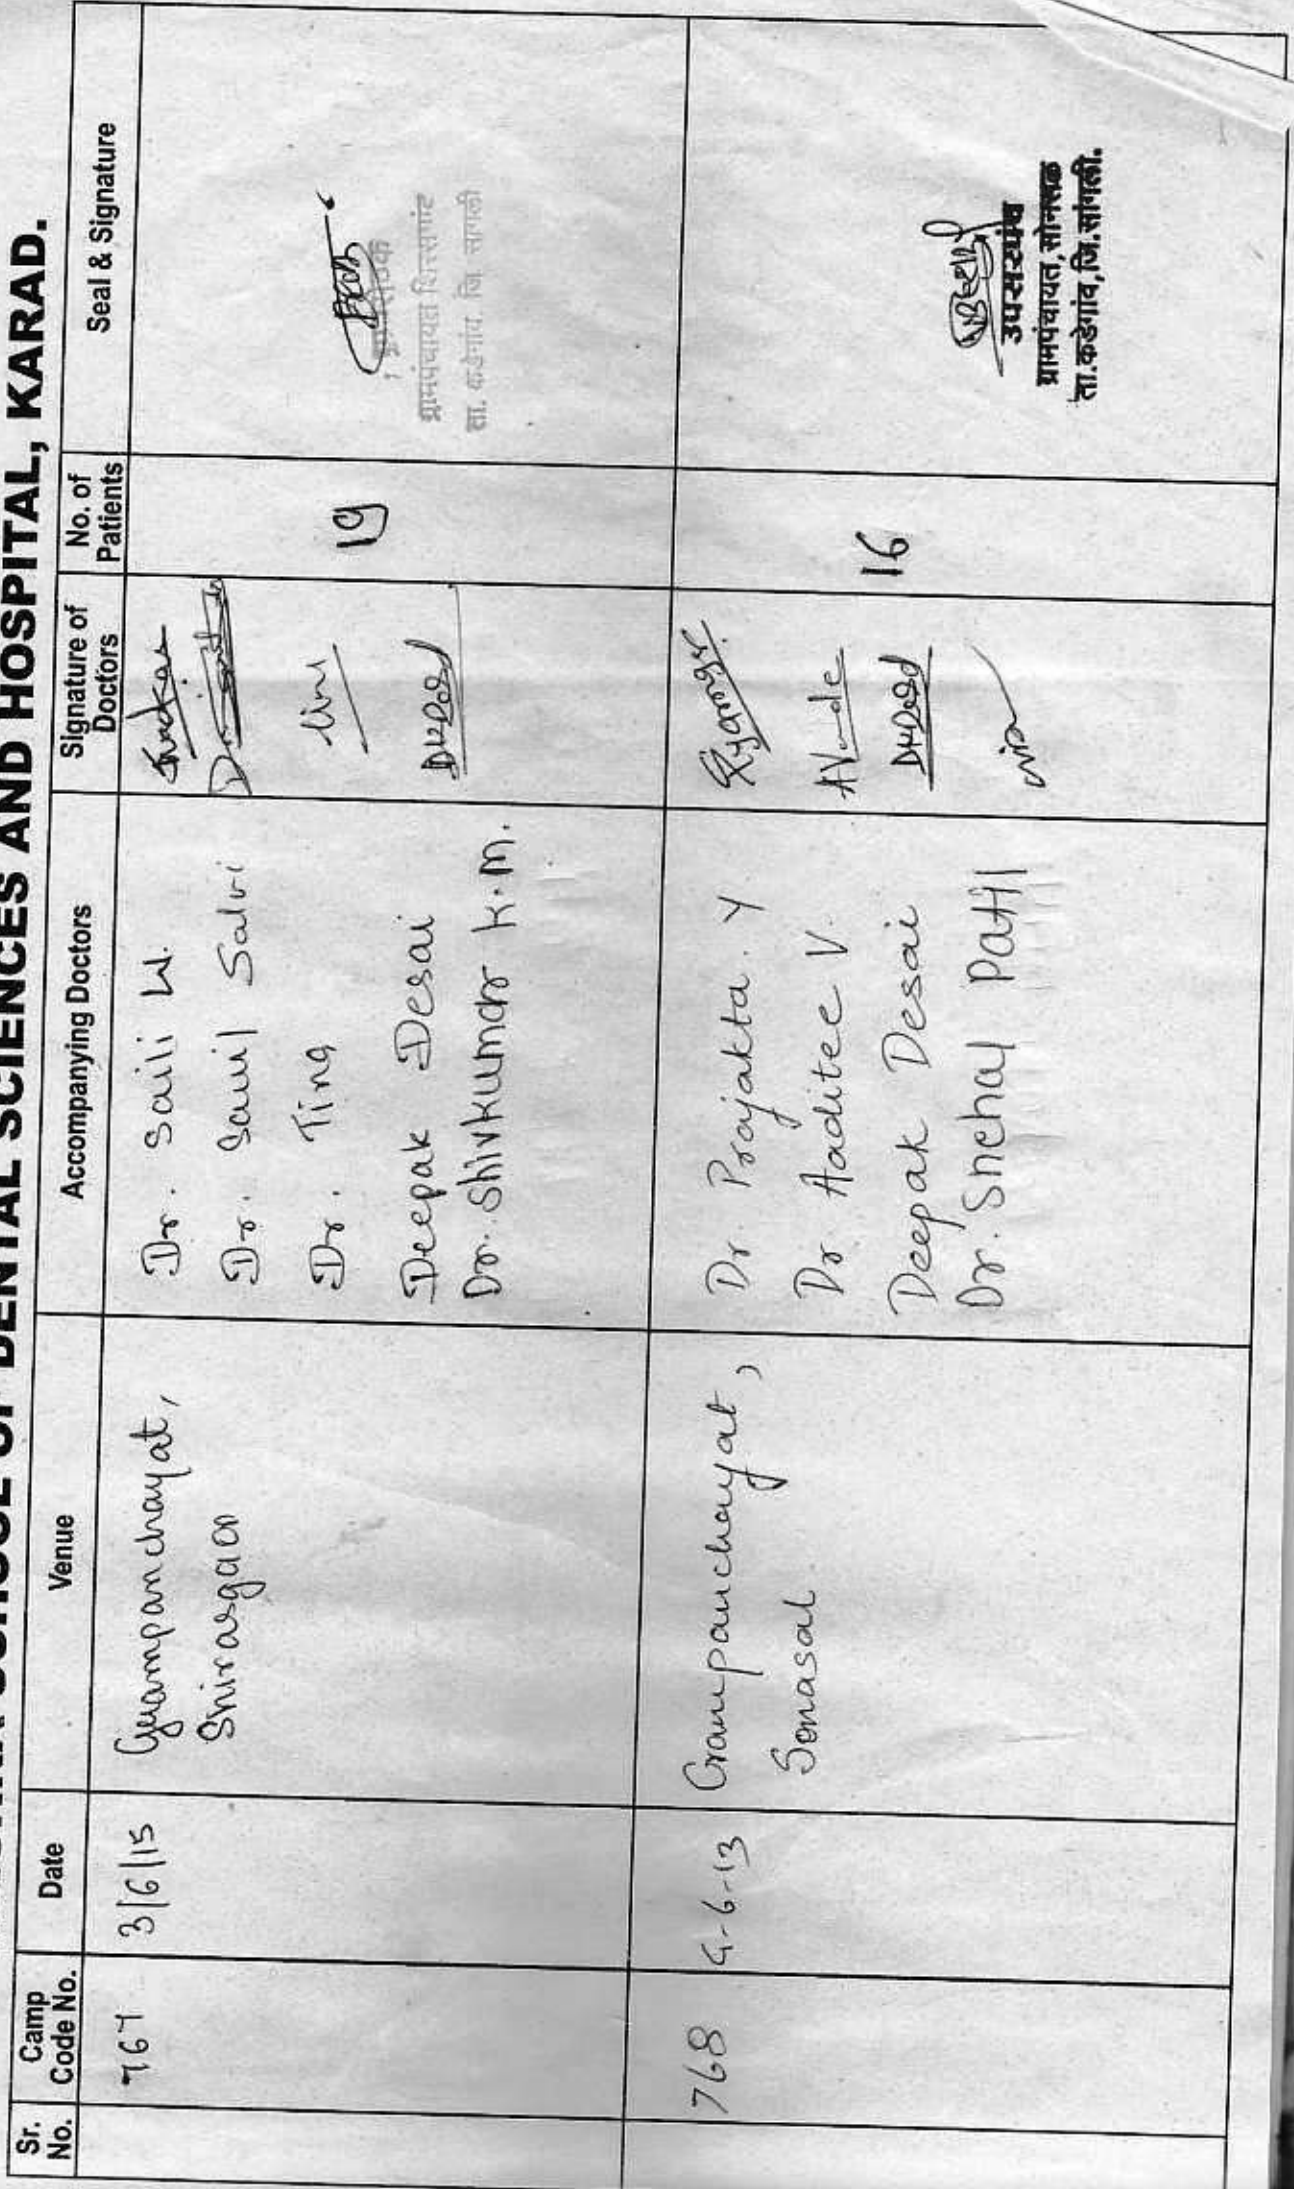 SCHOOL OF DENTAL SCIENCES AND HOSPITAL, KARAD.
Sr. No.
Camp Code No.
Date
Venue
Accompanying Doctors
Signature of Doctors
No. of Patients
Seal & Signature
767
3/6/15
Grampanchayat,
Shirasgaon
Dr. Saili W.
Dr. Salvi
Dr. Tina
Deepak Desai
Dr. Shivkumar K.M.
19
ग्रामपंचायत
ता. कडेगांव. जि. सांगली
768
4-6-13
Grampanchayat,
Sonasal.
Dr. Prajakta. Y
Dr. Aaditee V.
Deepak Desai
Dr. Snehal Patil
16
उपसरपंच
ग्रामपंचायत, सोनसळ
ता.कडेगांव, जि.सांगली.